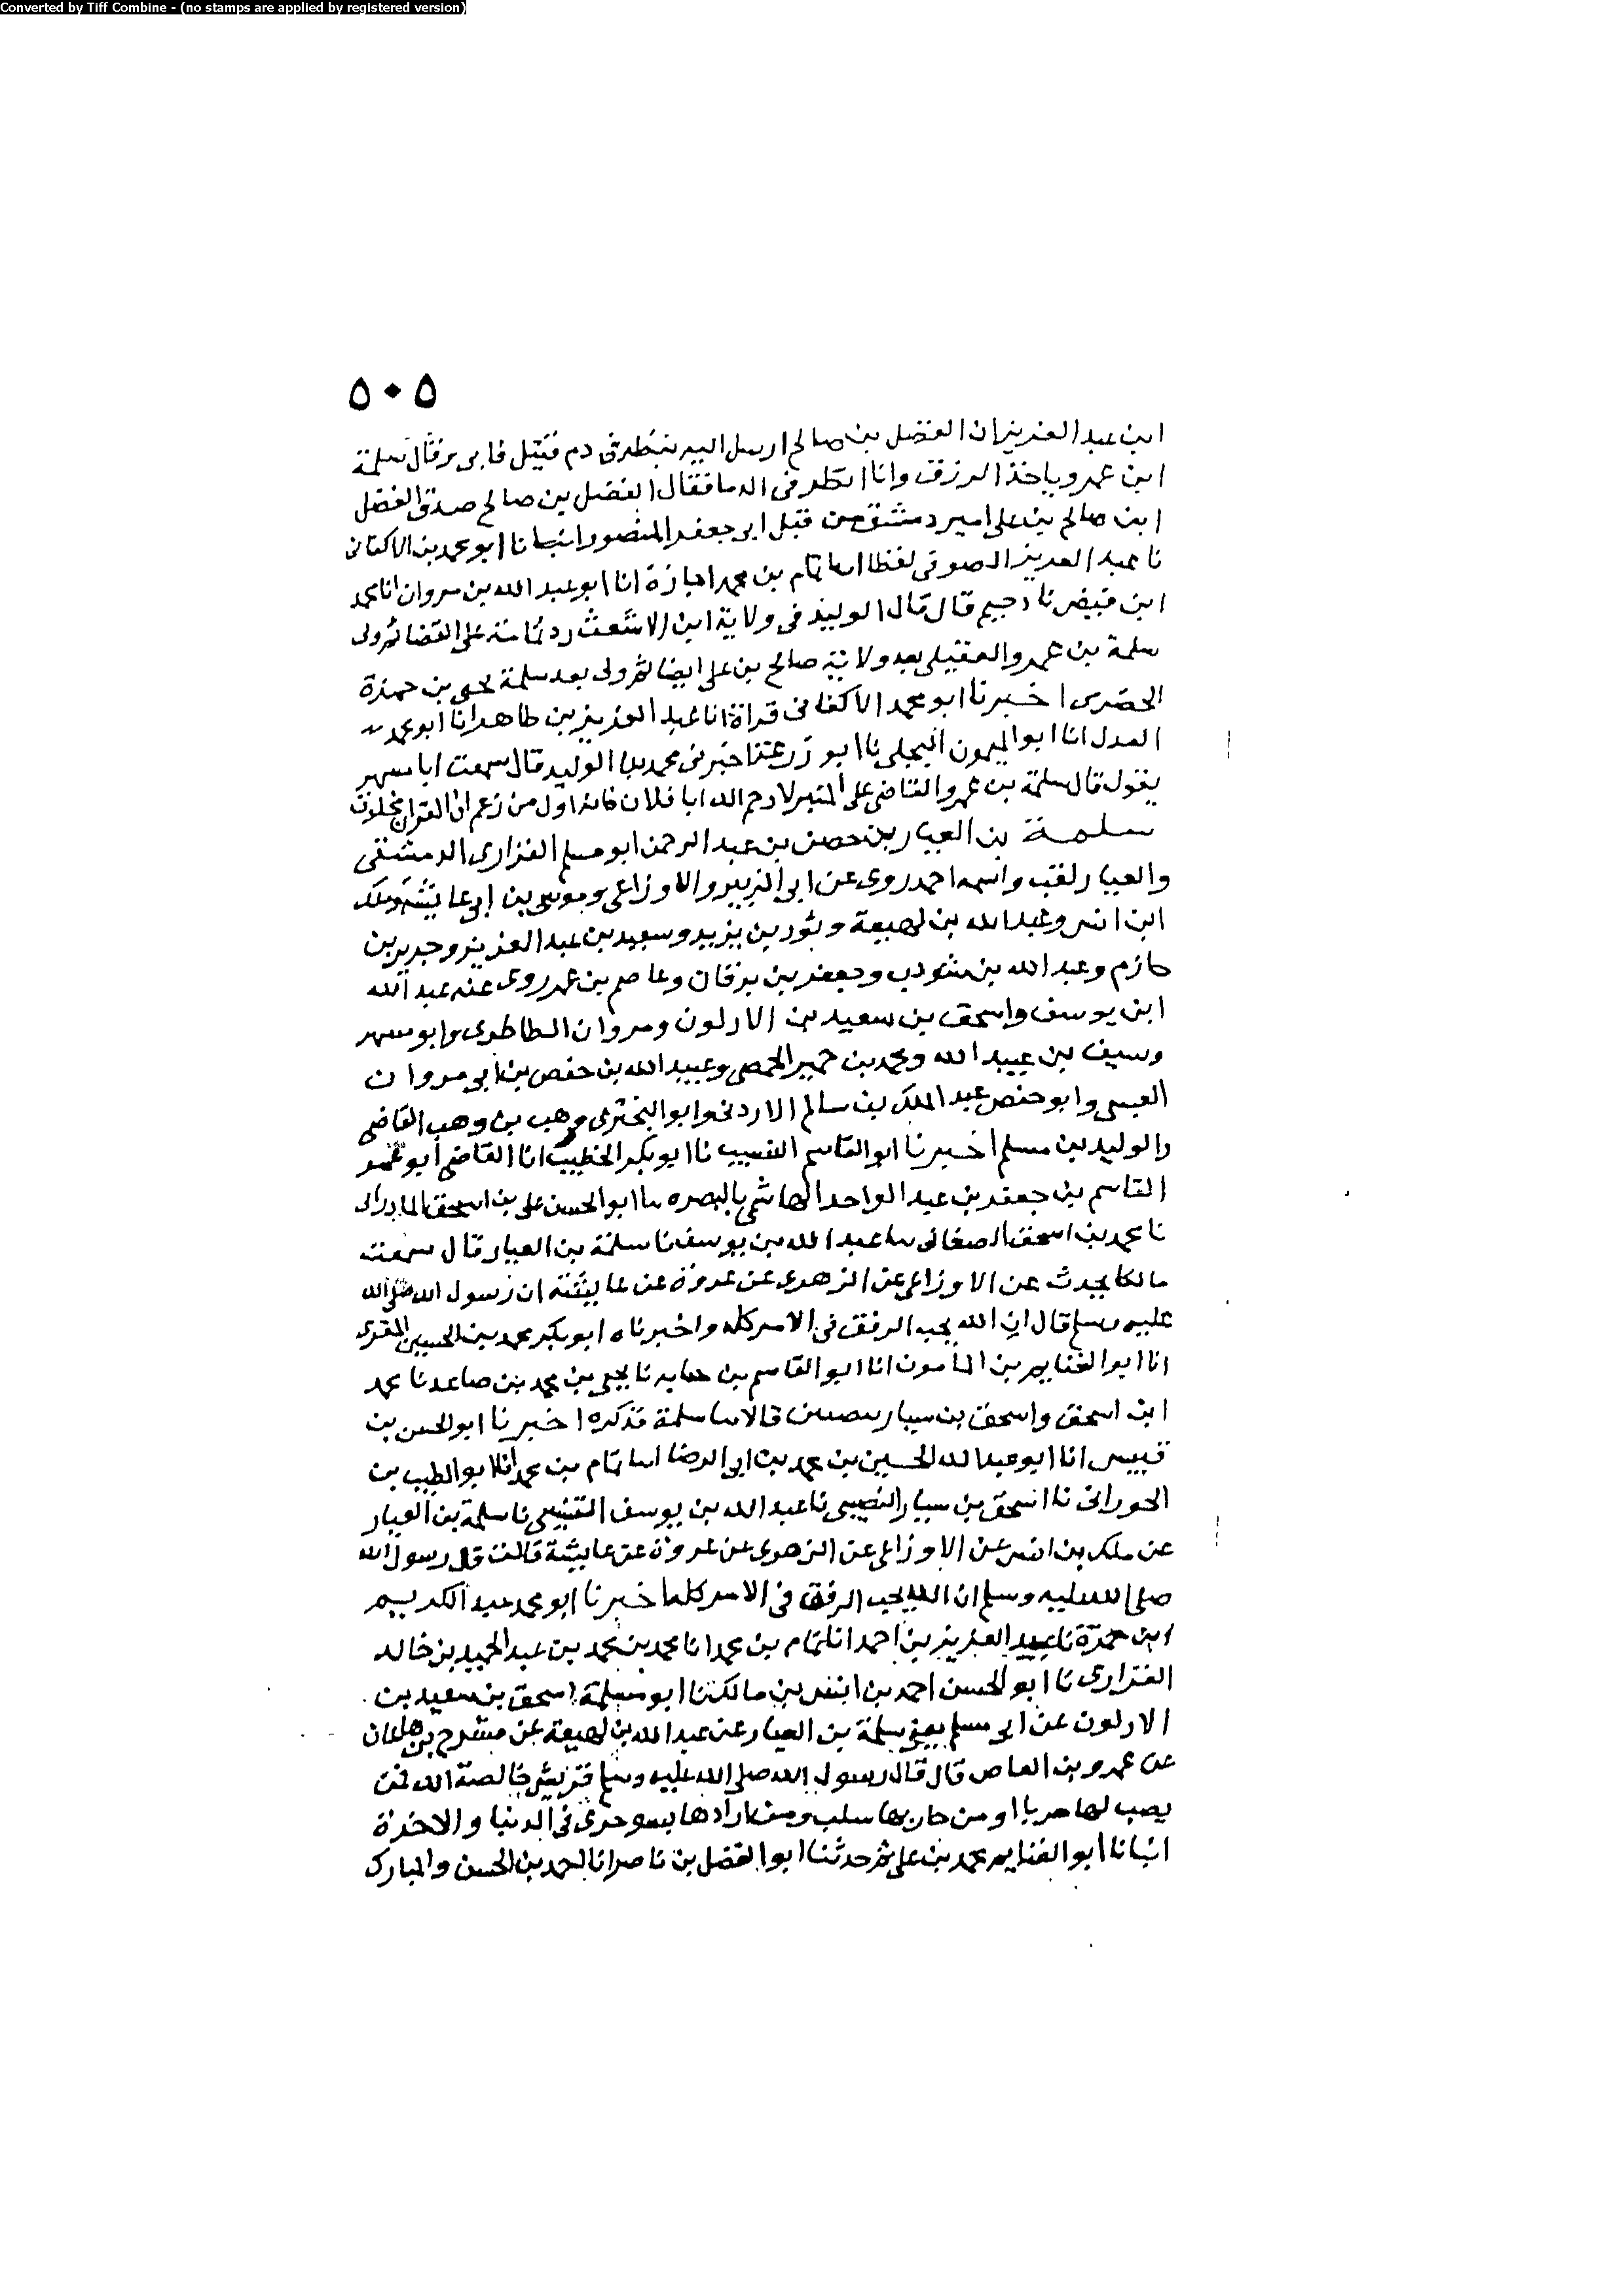 Converted by Tiff Combine - (no stamps are applied by registered version)
٥٠٥
ابن عبد العزيز ان الفضل بن صالح ارسل اليه ينظر في دم قتيل فابى وقال سلمة
ابن عمرو ياخذ الرزق وانا انظر في الدما فقال الفضل بن صالح صدق الفضل
ابن صالح بن على امير دمشق من قبل ابى جعفر المنصور انبانا ابو محمد بن الاكفانى
نا عبد العزيز الصوفى لفظا انا تمام بن محمد اجازة انا ابو عبد الله بن مروان انا محمد
ابن فيض نا دحيم قال قال الوليد فى ولاية ابن الاشعث رد ثمامة على القضا ثم ولى
سلمة بن عمرو العقيلى بعد ولاية صالح بن على ايضا ثم ولى بعد سلمة يحيى بن حمزة
الحضرى اخبرنا ابو محمد الاكفانى قراة انا عبد العزيز بن طاهر انا ابو محمد
العدل انا ابو الميمون البجلى نا ابو زرعة اخبرنى محمد بن الوليد قال سمعت ابا مسهر
يقول قال سلمة بن عمرو القاضى على المنبر لا رحم الله ابا فلان فانه اول من زعم ان القران مخلوق
سلمة بن العيار بن حصن بن عبد الرحمن ابو مسلم الفزارى الدمشقى
والعيار لقب واسمه احمد روى عن ابى الزبير والاوزاعى وموسى بن ابى عايشة وملك
ابن انس وعبد الله بن لهيعة وثور بن يزيد وسعيد بن عبد العزيز وجرير بن
حازم وعبد الله بن شوذب وجعفر بن برقان وعاصم بن عمر روى عنه عبد الله
ابن يوسف واسحق بن سعيد بن الاركون ومروان الطاطرى وابو مسهر
وسيف بن عبيد الله ومحمد بن حمير الحمصى وعبيد الله بن حفص بن ابى مروان
العبسى وابو حفص عبد الملك بن سالم الاردنى وابو البخترى وهب بن وهب القاضى
والوليد بن مسلم اخبرنا ابو القاسم النسيب نا ابو بكر الخطيب انا القاضى ابو عمر
القاسم بن جعفر بن عبد الواحد الهاشمى بالبصره نا ابو الحسن على بن اسحق المادرانى
نا محمد بن اسحق الصغانى نا عبد الله بن يوسف نا سلمة بن العيار قال سمعت
مالكا يحدث عن الاوزاعى عن الزهرى عن عروة عن عايشة ان رسول الله صلى الله
عليه وسلم قال ان الله يحب الرفق فى الامر كله واخبرناه ابو بكر محمد بن الحسين المقرى
انا ابو الغنايم بن المامون انا ابو القاسم بن حبابه نا يحيى بن محمد بن صاعد نا محمد
ابن اسحق واسحق بن سيار بنصيبين قالا نا سلمة فذكره اخبرنا ابو الحسن بن
قبيس انا ابو عبد الله الحسين بن محمد بن ابى الرضا انا تمام بن محمد انا ابو الطيب بن
الحورانى نا اسحق بن سيار النصيبى نا عبد الله بن يوسف التنيسى نا سلمة بن العيار
عن ملك بن انس عن الاوزاعى عن الزهرى عن عروة عن عايشة قالت قال رسول الله
صلى الله عليه وسلم ان الله يحب الرفق فى الامر كله اخبرنا ابو محمد عبد الكريم
ابن حمزة نا عبد العزيز بن احمد انا تمام بن محمد انا محمد بن محمد بن عبد الحميد بن خالد
الفزارى نا ابو الحسن احمد بن انس بن مالك نا ابو مسلمة اسحق بن سعيد بن
الاركون عن ابى مسلم يعنى سلمة بن العيار عن عبد الله بن لهيعة عن مشرح بن هاعان
عن عمرو بن العاص قال قال رسول الله صلى الله عليه وسلم قريش خالصة الله فمن
نصب لها حربا او من حاربها سلب ومن ارادها بسو خزى فى الدنيا والاخرة
انبانا ابو الغنايم محمد بن على ثم حدثنا ابو الفضل بن ناصر انا احمد بن الحسن والمبارك